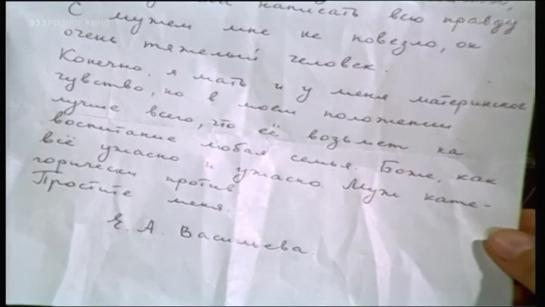 РОДНОЕ КИНО
написать всю правду
С мужем мне не повезло, он
очень тяжелый человек.
Конечно, я мать и у меня материнское
чувство, но в моем положении
лучше всего, что её возьмет на
воспитание любая семья. Боже, как
всё ужасно и ужасно. Муж кате-
горически против
Простите меня.
Е. А. Васильева.